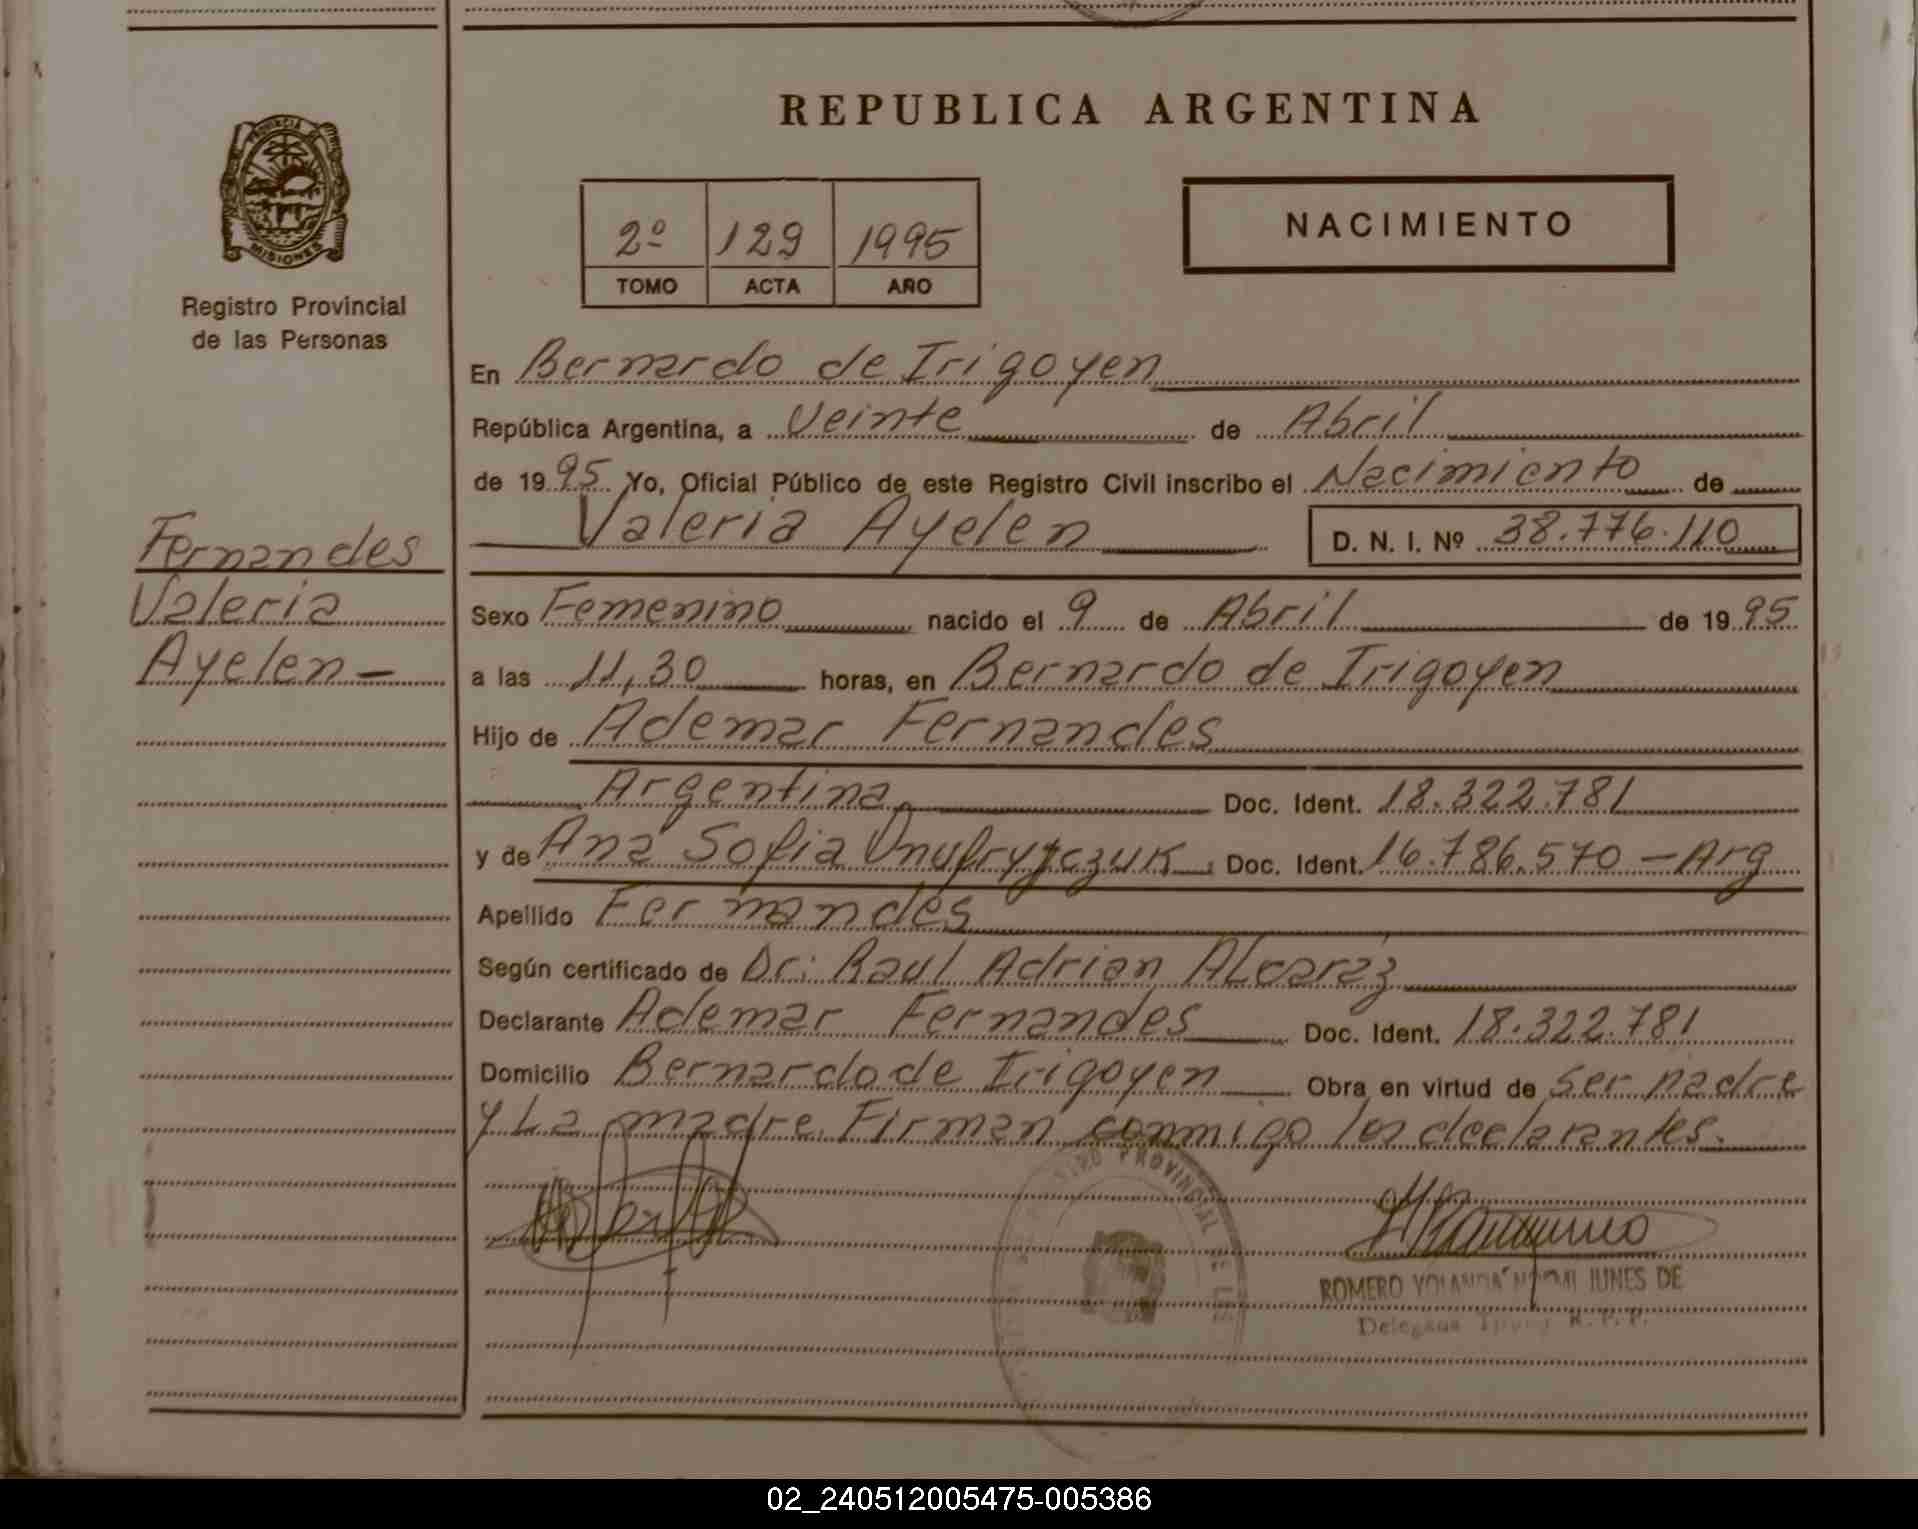 REPUBLICA ARGENTINA
PROVINCIA DE
MISIONES
Registro Provincial
de las Personas
2º 129 1995
TOMO ACTA AÑO
NACIMIENTO
En Bernardo de Irigoyen
República Argentina, a Veinte de Abril
de 1995 Yo, Oficial Público de este Registro Civil inscribo el Nacimiento de
Valeria Ayelen D. N. I. Nº 38.776.110
Fernandes
Valeria
Ayelen-
Sexo Femenino nacido el 9 de Abril de 1995
a las 11,30 horas, en Bernardo de Irigoyen
Hijo de Ademar Fernandes
Argentina Doc. Ident. 18.322.781
y de Ana Sofia Doc. Ident. 16.786.570 - Arg
Apellido Fernandes
Según certificado de Dr: Raul Adrian Alcaraz
Declarante Ademar Fernandes Doc. Ident. 18.322.781
Domicilio Bernardo de Irigoyen Obra en virtud de ser padre
y La madre. Firman conmigo los declarantes.
PROVINCIAL DE
ROMERO YOLANDA DE
R. P. P.
02_240512005475-005386